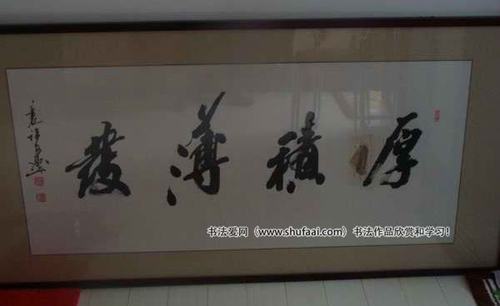 厚積薄發
书法爱网（www.shufaai.com）书法作品欣赏和学习！